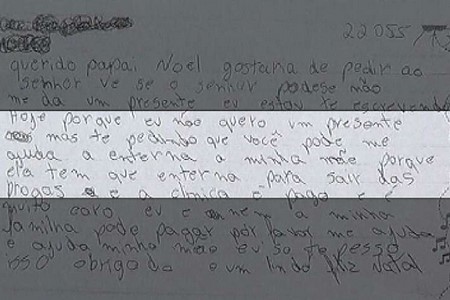 22055
querido papai Noel gostaria de pedir ao
senhor ve se o senhor podese não
me da um presente eu estou te escrevendo
Hoje porque eu não quero um presente
mas te pedindo que você pode me
ajuda a enterna a minha mãe porque
ela tem que enterna para sair das
Drogas e a clinica é pago e é
muito caro eu e nem a minha
familha pode pagar por favor me ajuda
e ajuda minha mãe eu so te pesso
isso obrigado e um lindo feliz Natal